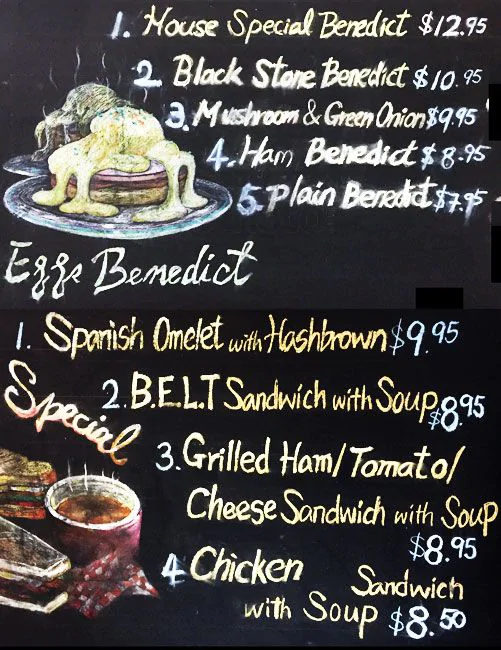 1. House Special Benedict $12.95
2. Black Stone Benedict $10.95
3. Mushroom & Green Onion $9.95
4. Ham Benedict $8.95
5. Plain Benedict $7.95
Eggs Benedict
1. Spanish Omelet with Hashbrown $9.95
Special
2. B.E.L.T Sandwich with Soup $8.95
3. Grilled Ham/Tomato/
Cheese Sandwich with Soup
$8.95
4 Chicken Sandwich
with Soup $8.50